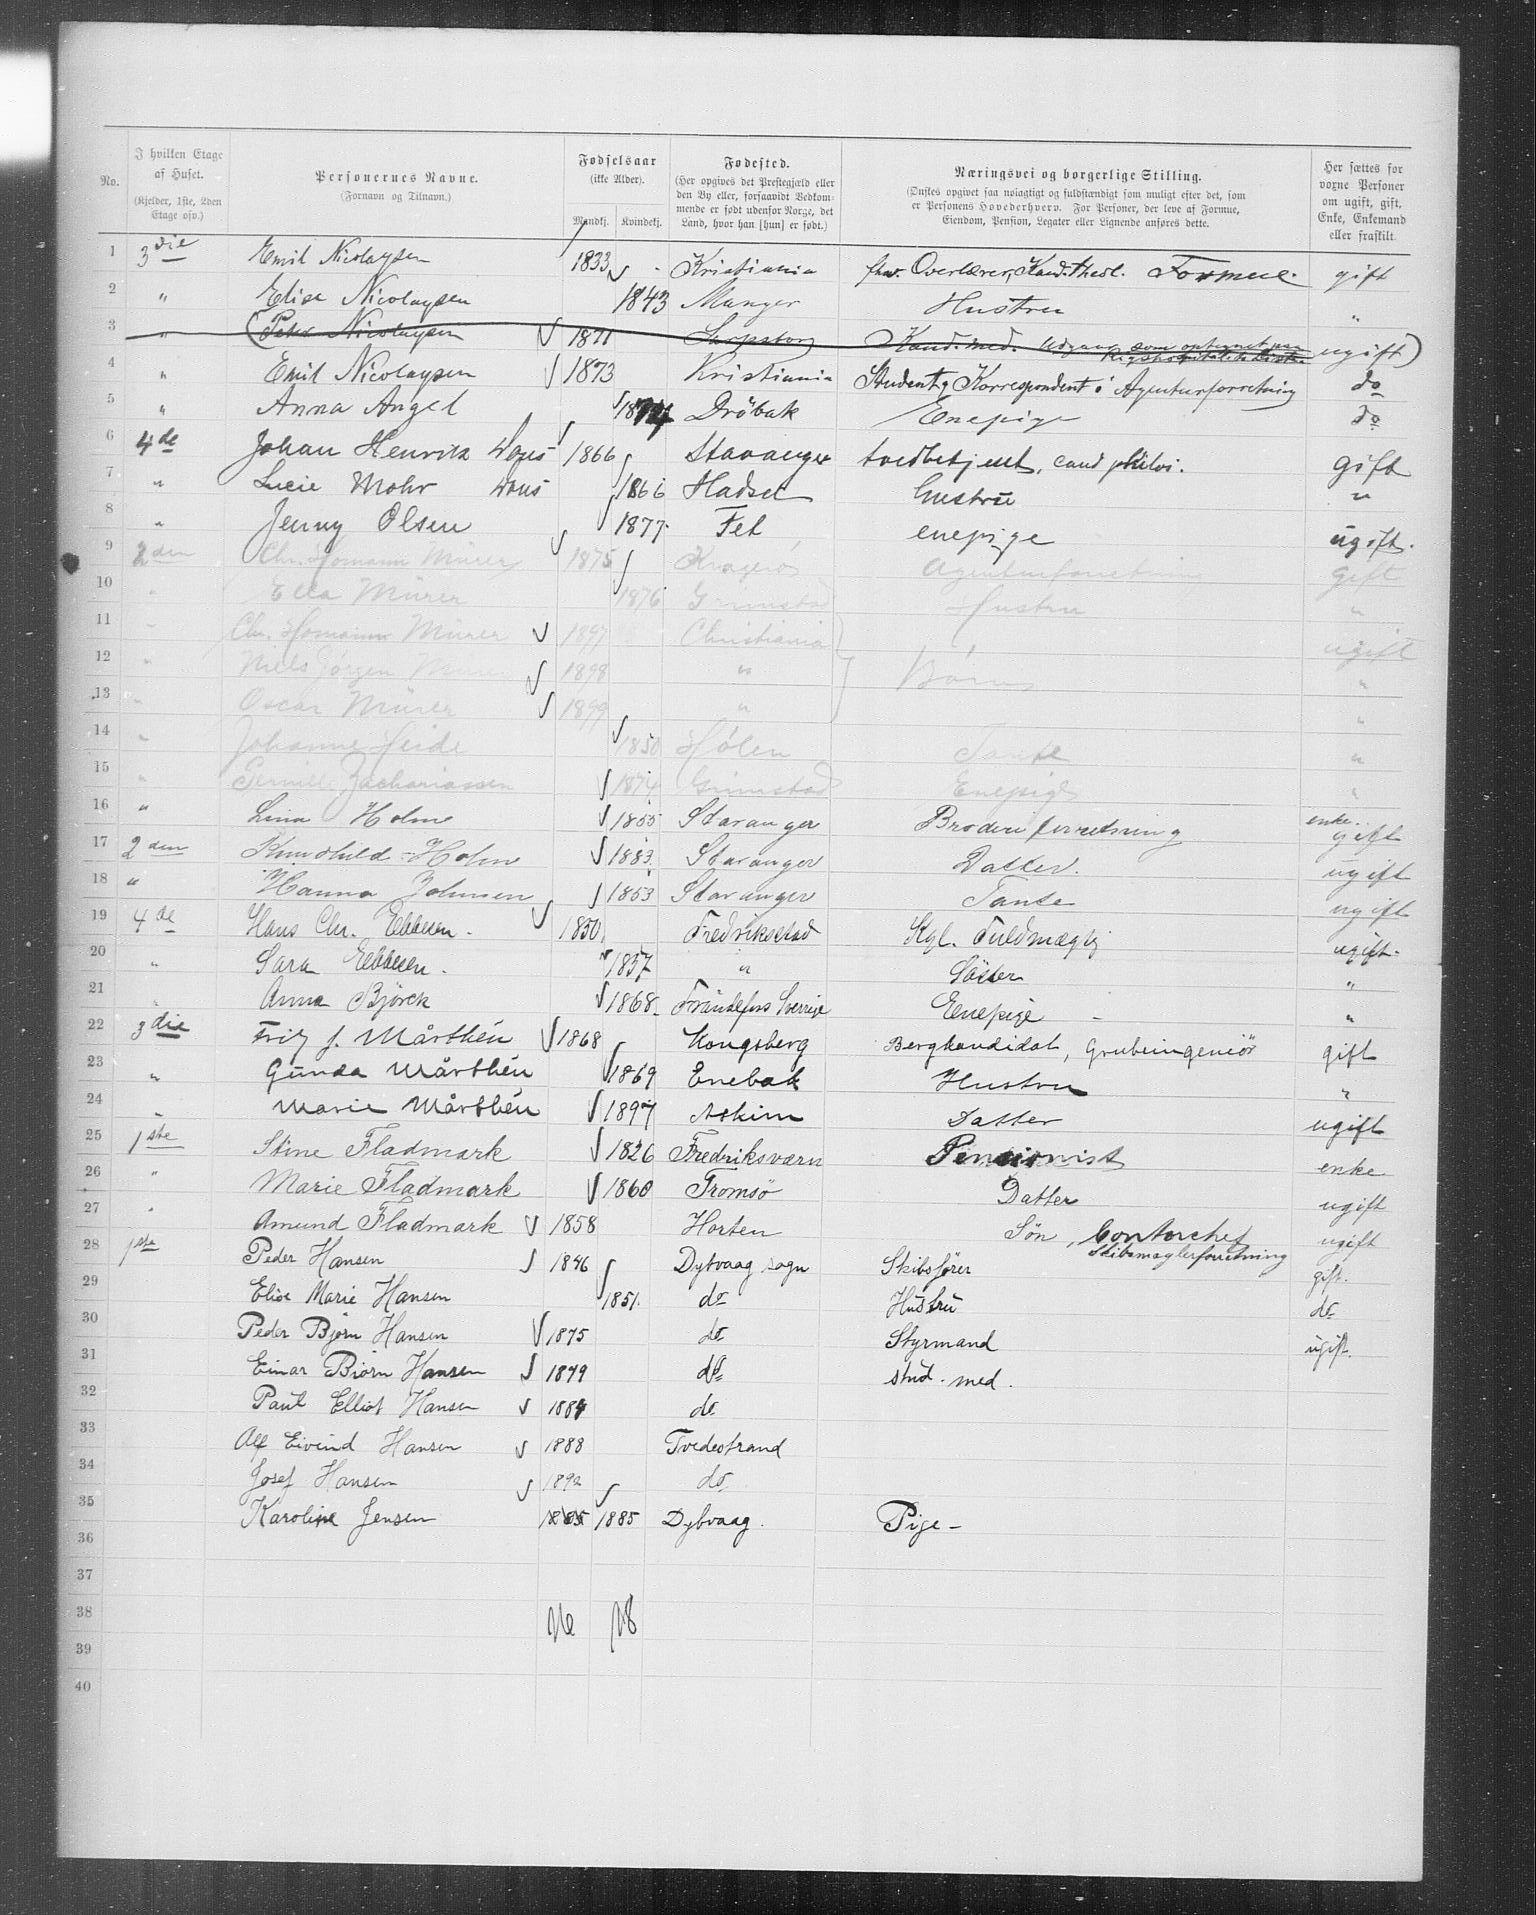 No.
I hvilken Etage af Huset.
(Kjelder, 1ste, 2den Etage osv.)
Personernes Navne.
(Fornavn og Tilnavn.)
Fødselsaar
(ikke Alder).
Mandkj. Kvindekj.
Fødested.
(Her opgives det Prestegjæld eller den By eller, forsaavidt Vedkommende er født udenfor Norge, det Land, hvor han [hun] er født.)
Næringsvei og borgerlige Stilling.
(Ønskes opgivet saa nøiagtigt og fuldstændigt som muligt efter det, som er Personens Hovederhverv. For Personer, der leve af Formue, Eiendom, Pension, Legater eller Lignende anføres dette.
Her sættes for voxne Personer om ugift, gift, Enke, Enkemand eller fraskilt.
1 3die Emil Nicolaysen 1833 Kristiania Overlærer, Kand. theol. Formue. gift
2 " Elise Nicolaysen 1843 Manger Hustru "
3 " (Peter Nicolaysen 1871 Sarpsborg Kand. med. ugift)
4 " Emil Nicolaysen 1873 Kristiania Student, Korrespondent i Agenturforretning do
5 " Anna Angel 1874 Drøbak Enepige do
6 4de Johan Henrik 1866 Stavanger toldbetjent, cand philos. gift
7 " Lucie Mohr 1866 Hadsel Hustru "
8 " Jenny Olsen 1877 Fet enepige ugift.
9 2den Chr. Homann Mürer 1875 Kragerø Agenturforretning gift
10 " Ella Mürer 1876 Grimstad Hustru "
11 " Chr. Homann Mürer 1897 Christiania ugift
12 " Niels Jörgen Mürer 1898 " Börn "
13 " Oscar Mürer 1899 " "
14 " Johanne Heide 1850 Hølen Tante "
15 " Pernille Zachariassen 1874 Grimstad Enepige "
16 " Lina Holm 1855 Stavanger Broderiforretning enke gift
17 2den Holm 1883 Stavanger Datter. ugift
18 " Hanna Johnsen 1853 Stavanger Tante ugift
19 4de Hans Chr. Ebbesen. 1850 Fredriksstad Kgl. Fuldmægtig ugift.
20 " Sara Ebbesen. 1857 " Söster "
21 " Anna Björck 1868 Sverige Enepige "
22 3die Fritz J. Mårthén 1868 Kongsberg Bergkandidat, Grubeingeniör gift
23 " Gunda Mårthén 1869 Enebak Hustru "
24 " Marie Mårthén 1897 Askim Datter ugift
25 1ste Stine Fladmark 1826 Fredriksværn Pensionist enke
26 " Marie Fladmark 1860 Tromsö Datter ugift
27 " Amund Fladmark 1858 Horten Sön, Contorchef Skibsmæglerforretning ugift
28 1ste Peder Hansen 1846 Dybvaag sogn Skibsfører gift.
29 Elise Marie Hansen 1851. do Hustru do
30 Peder Bjørn Hansen 1875 do Styrmand ugift.
31 Einar Biørn Hansen 1879 do stud. med.
32 Paul Elliot Hansen 1884 do
33 Alf Eivind Hansen 1888 Tvedestrand
34 Josef Hansen 1892 do
35 Karoline Jensen 1885 1885 Dybvaag. Pige -
36
37
38 16 18
39
40